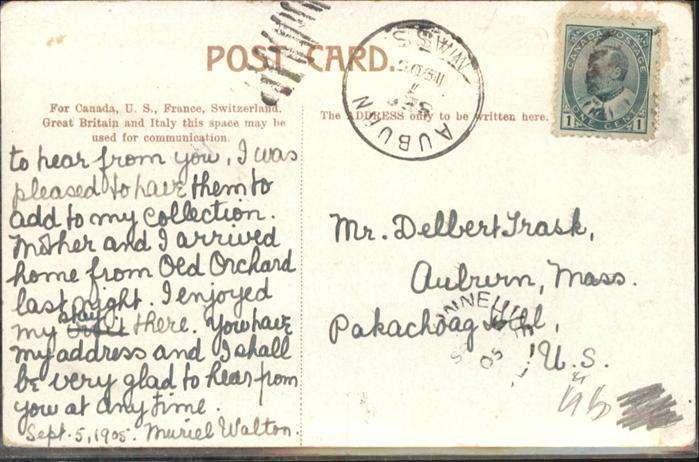 POST CARD.
For Canada, U. S., France, Switzerland,
Great Britain and Italy this space may be
used for communication.
The ADDRESS only to be written here.
AUBURN
MASS
SEP
CANADA POSTAGE
1 ONE CENT 1
to hear from you, I was
pleased to have them to
add to my collection.
Mother and I arrived
home from Old Orchard
last night. I enjoyed
my stay there. You have
my address and I shall
be very glad to hear from
you at any time.
Sept. 5, 1905. Muriel Walton.
Mr. Delbert Trask,
Auburn, Mass.
Pakachoag
U.S.
05